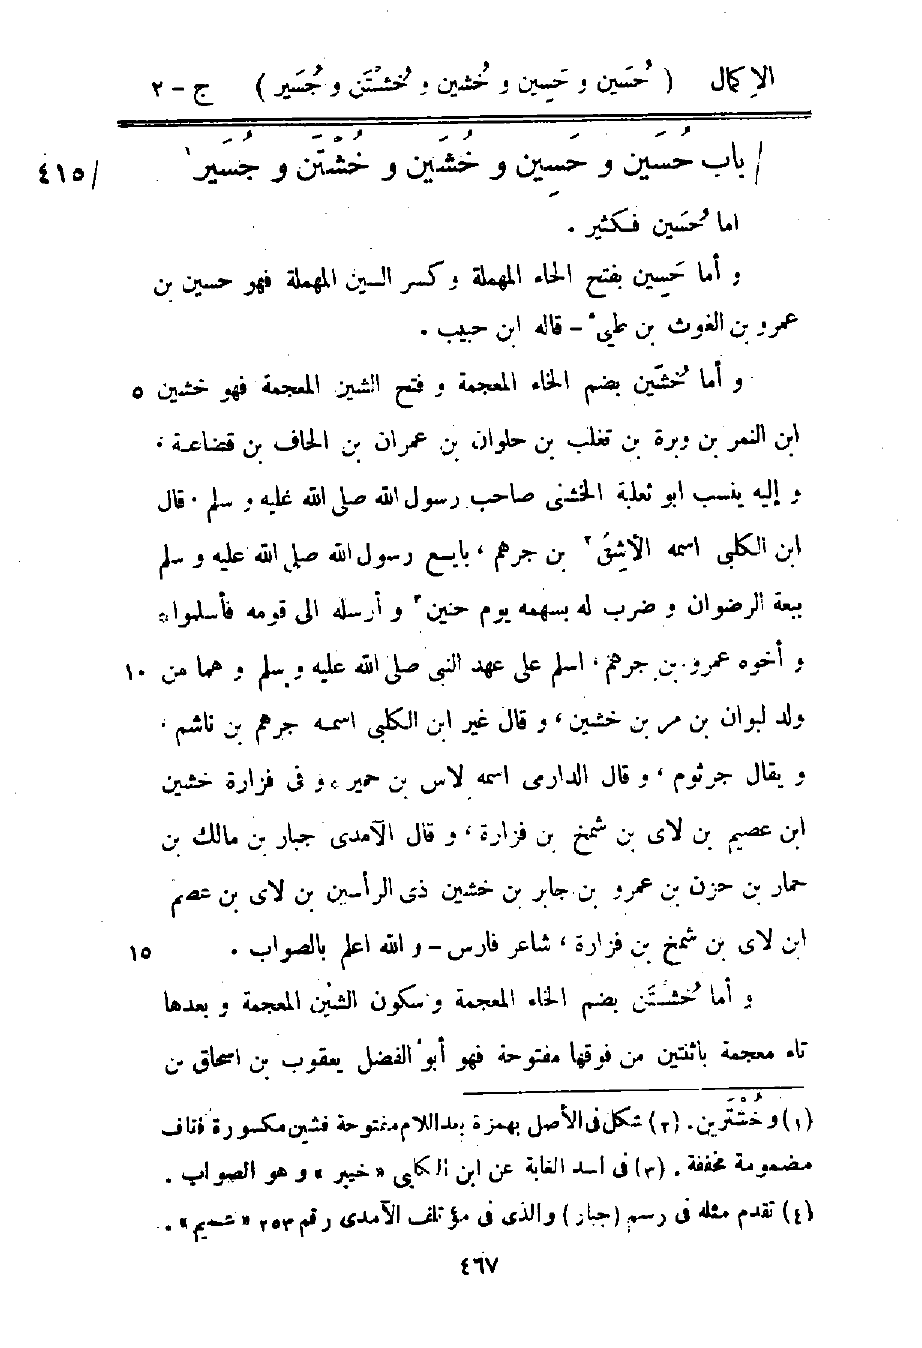 الإكمال ( حُسَين و حَسِين و خُشين و خُشْتَن و جُسَير ) ج – ٢
/ باب حُسَين و حَسِين و خُشَين و خُشْتَن و جُسَير ١ /٤١٥
اما حُسَين فكثير .
و أما حَسِين بفتح الحاء المهملة و كسر السين المهملة فهو حسين بن
عمرو بن الغوث بن طيء – قاله ابن حبيب .
و أما خُشَين بضم الخاء المعجمة و فتح الشين المعجمة فهو خشين ٥
ابن النمر بن وبرة بن تغلب بن حلوان بن عمران بن الحاف بن قضاعة ،
و إليه ينسب ابو ثعلبة الخشنى صاحب رسول الله صلى الله عليه و سلم . قال
ابن الكلبى اسمه الأَشِقُ ٢ بن جرهم ، بايع رسول الله صلى الله عليه و سلم
بيعة الرضوان و ضرب له بسهمه يوم حنين ٣ و أرسله الى قومه فأسلموا ،
و أخوه عمرو بن جرهم ، اسلم على عهد النبى صلى الله عليه و سلم و هما من ١٠
ولد لبوان بن مر بن خشين ، و قال غير ابن الكلبى اسمه جرهم بن ناشم ،
و يقال جرثوم ، و قال الدارمى اسمه لاس بن حمير ، و فى فزارة خشين
ابن عصيم بن لاى بن شمخ بن فزارة ، و قال الآمدى جبار بن مالك بن
حمار بن حزن بن عمرو بن جابر بن خشين ذى الرأسين بن لاى بن عصم
ابن لاى بن شمخ بن فزارة ، شاعر فارس – و الله اعلم بالصواب . ١٥
و أما خُشْتَن بضم الخاء المعجمة و سكون الشين المعجمة و بعدها
تاء معجمة باثنتين من فوقها مفتوحة فهو أبو الفضل يعقوب بن اسحاق بن
(١) و خُشْتَرين . (٢) شكل فى الأصل بهمزة بعد اللام مفتوحة فشين مكسورة فقاف
مضمومة مخففة . (٣) فى اسد الغابة عن ابن الكلبى « خيبر » و هو الصواب .
(٤) تقدم مثله فى رسم (جبار) والذى فى مؤتلف الآمدى رقم ٢٥٣ « شميم » .
٤٦٧